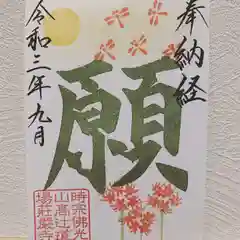 奉納経
願
令和三年九月
時宗佛光
山高辻道
場荘厳寺